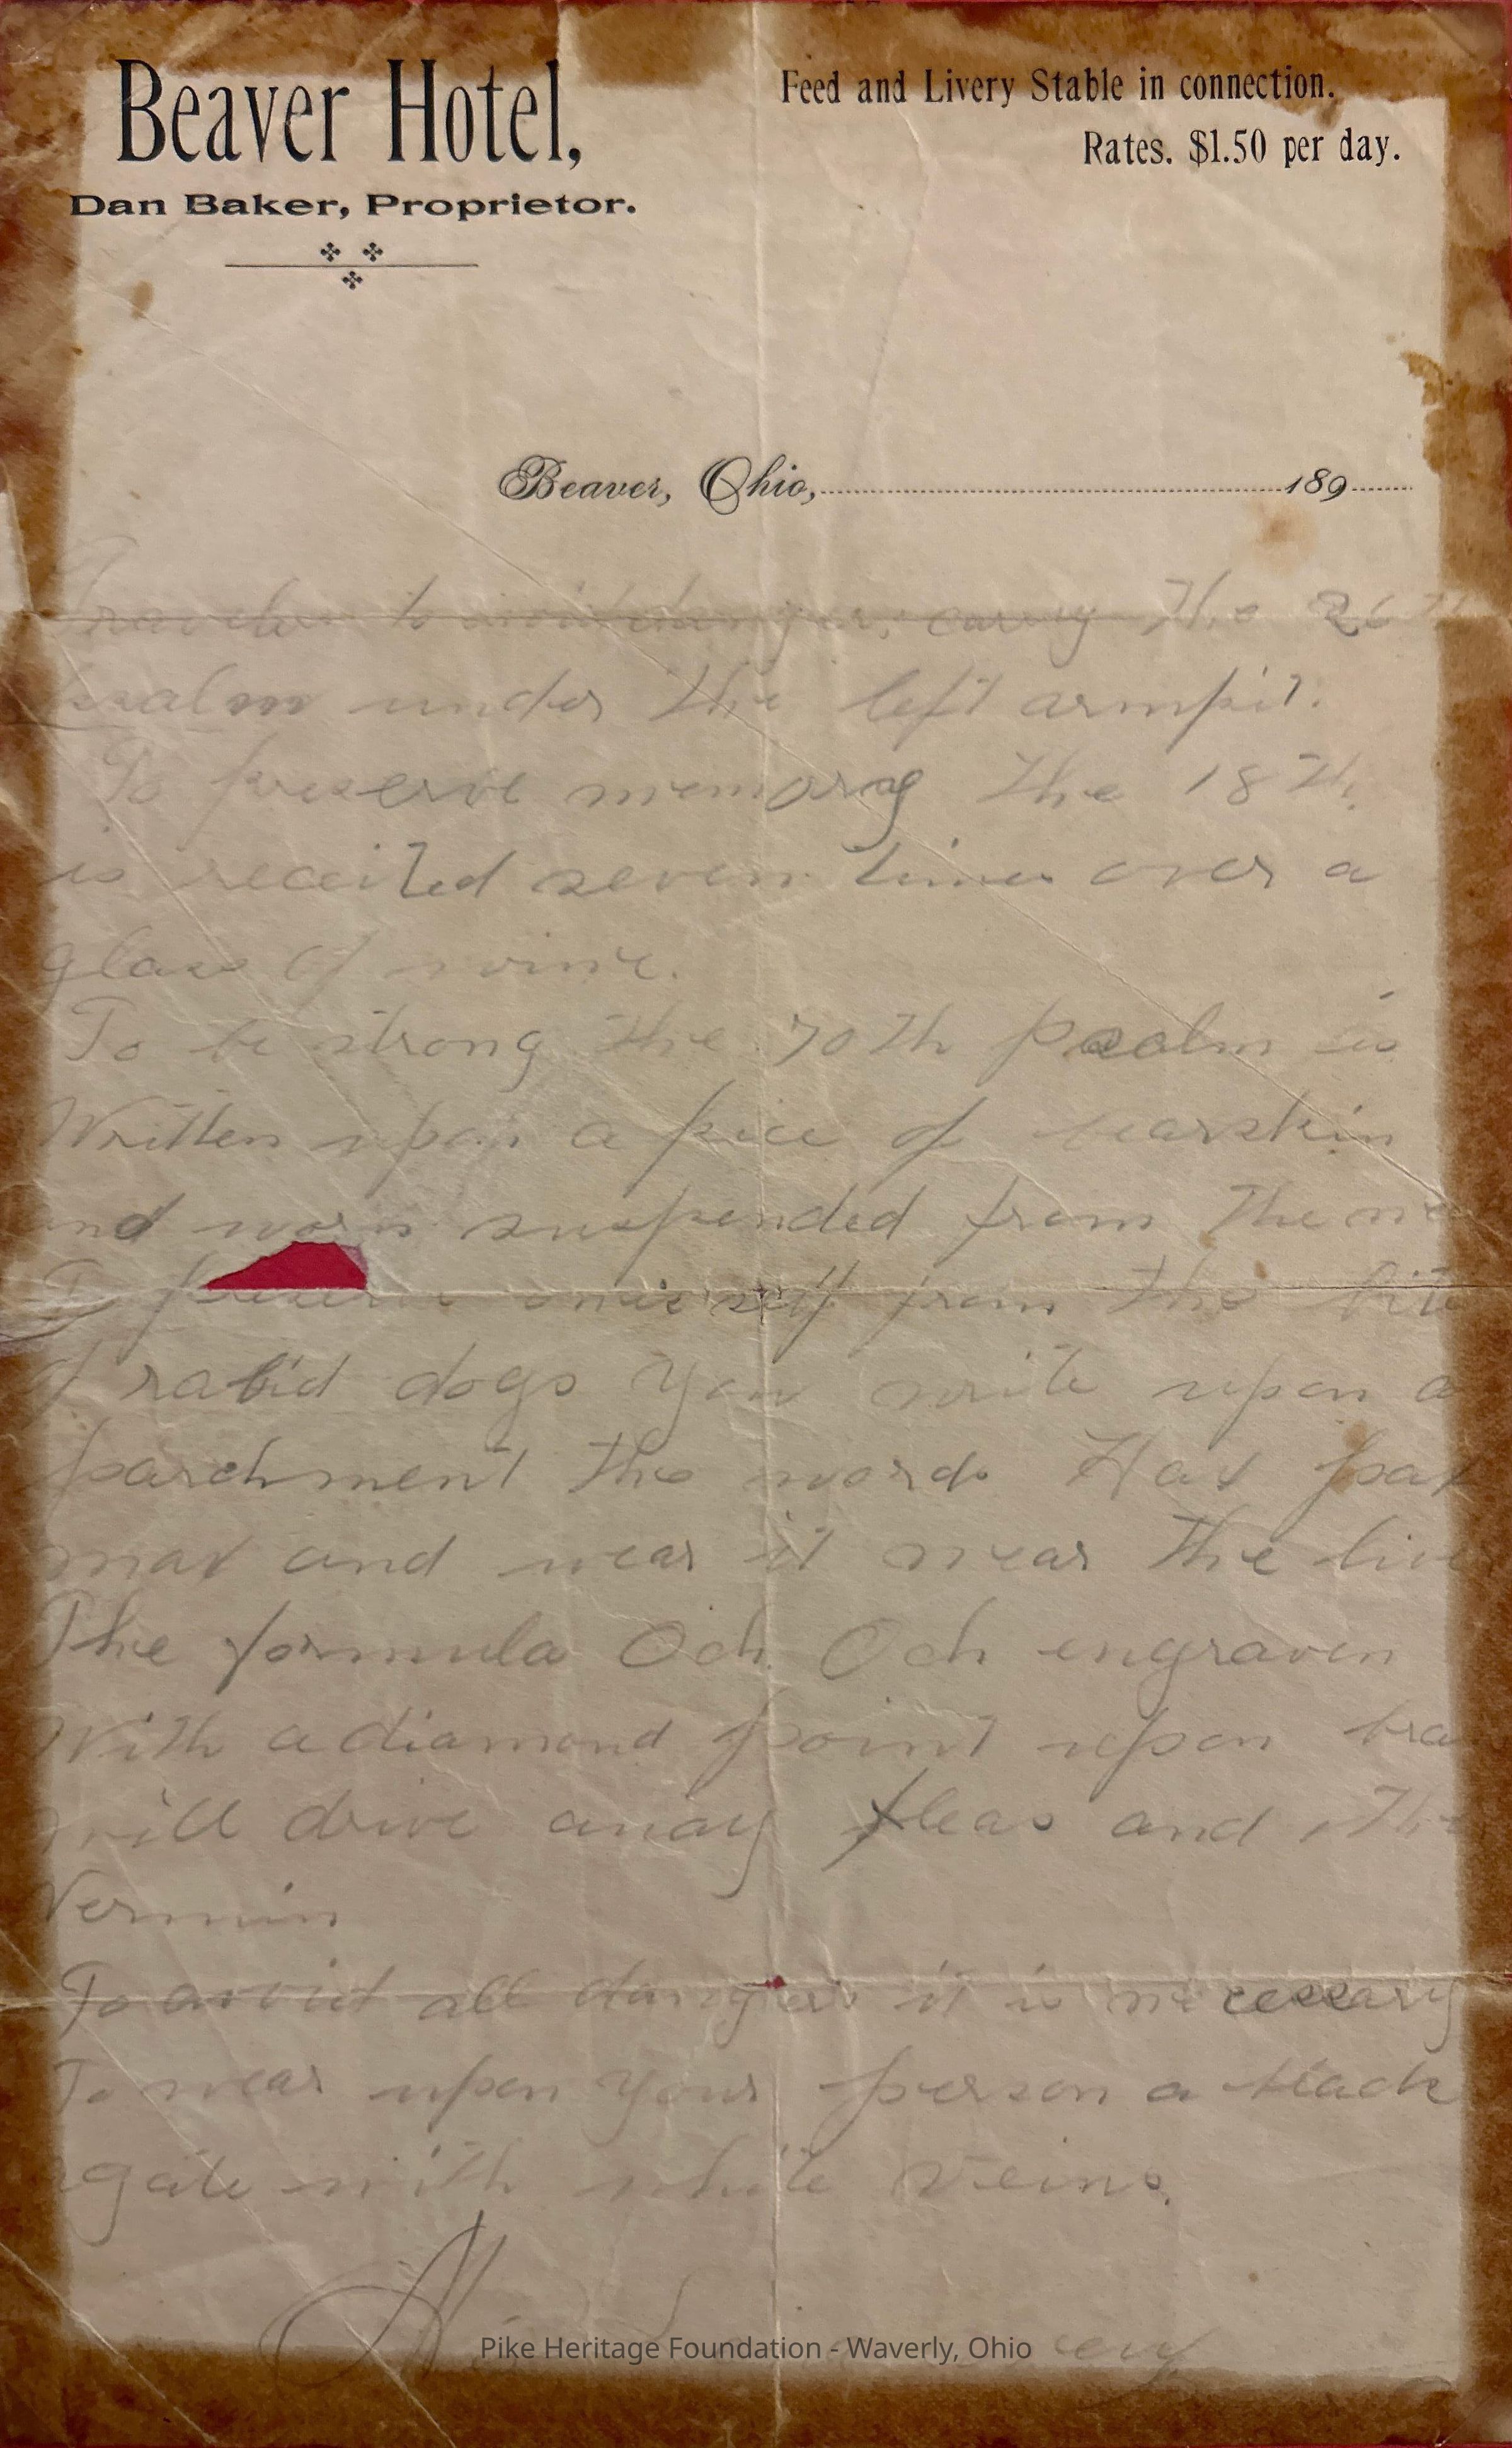 Beaver Hotel,
Dan Baker, Proprietor.
Feed and Livery Stable in connection.
Rates. $1.50 per day.
Beaver, Ohio, 189
to avoid danger, carry the 26th
psalm under the left armpit.
To preserve memory the 18th
is receited seven times over a
glass of wine.
To be strong the 70th psalm is
Written upon a piece of bearskin
and worn suspended from the ne
To preserve oneself from the bite
of rabid dogs you write upon a
parchment the words Hax pax
max and wear it near the live
The formula Och Och engraven
With a diamond point upon bra
will drive away fleas and
Vermin
To avoid all dangers it is necessary
To wear upon your person a black
agate with white veins.
Pike Heritage Foundation - Waverly, Ohio